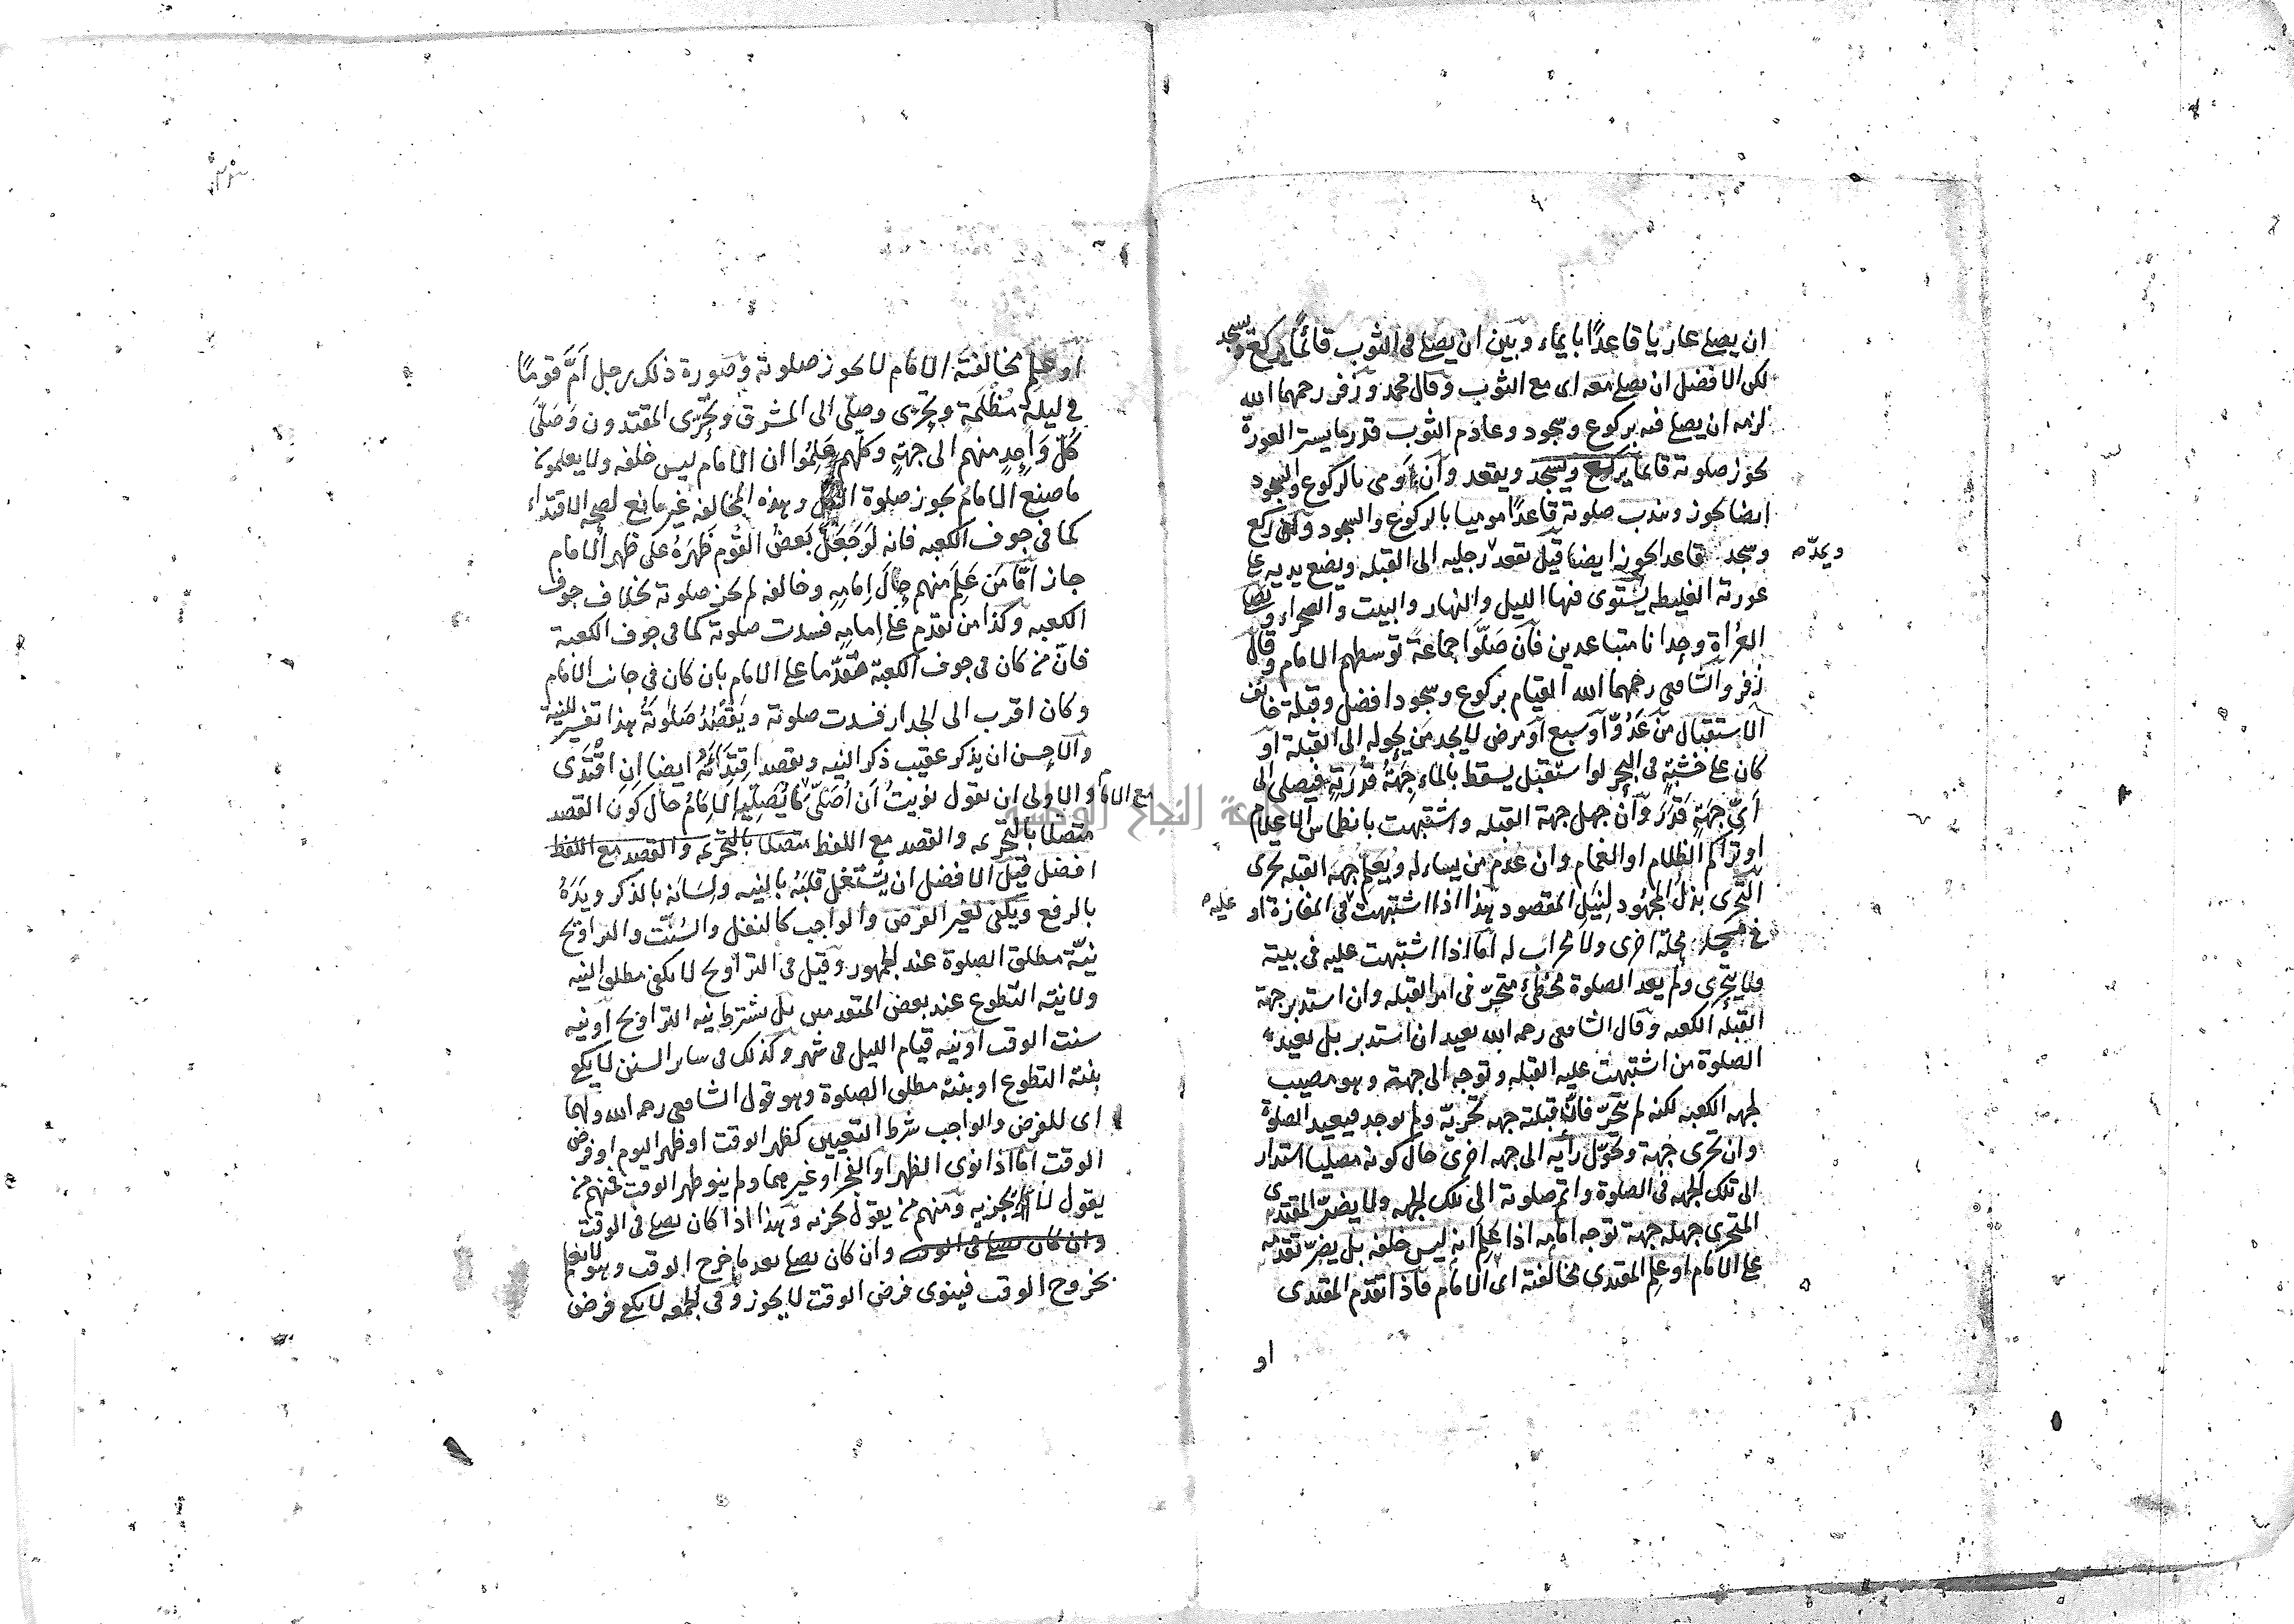 ان يصلي عاريا قاعدًا بايماء وبين ان يصلي في الثوب قائمًا يركع ويسجد
لكن الافضل ان يصلي معه اى مع الثوب وقال محمد وزفر رحمهما الله
لزمه ان يصلي فيه بركوع وسجود وعادم الثوب قدر ما يستر العورة
يجوز صلوته قائما يركع ويسجد ويقعد وان اومى بالركوع والسجود
ايضا يجوز وندب صلوته قاعدًا موميا بالركوع والسجود وان ركع
وسجد قاعدا يجوز ايضا قيل يقعد رجليه الى القبله ويضع يديه على
ويمدّ
عورته الغليظه يستوى فيها الليل والنهار والبيت والصحراء ويصلي
العُراة وحدانا متباعدين فان صَلَّوا جماعة توسطهم الامام وقال
زفر والشافعي رحمهما الله القيام بركوع وسجود افضل وقبلة خائف
الاستقبال من عَدُوّ او سبع او مرض لا يجد مَن يحوله الى القبلة او
كان على خشبةٍ في البحر لو استقبل يسقط بالماء جِهَةُ قُدْرَتِهِ فيصلى الى
اَىِّ جهَةٍ قَدَرَ وَان جهل جهة القبله واشتبهت بانطماس الاعلام
او تراكم الظلام او الغمام وان عُدم من يساءله ويُعلم جهة القبله تحرى
التحرى بذل المجهود لنيل المقصود هذا اذا اشتبهت في المفازة او
عليه
في مسجد محلة اخرى ولا محراب له اما اذا اشتبهت عليه في بيته
ولا يتحرى ولم يعد الصلوة مخطئ متحرّ في امر القبله وان استدبر جهة
القبله الكعبه وقال الشافعي رحمه الله يعيد ان استدبر بل يعيد
الصلوة من اشتبهت عليه القبله وتوجه الى جهة وهو مصيب
لجهه الكعبه لكنه لم يتحرّ فان قبلته جهه تحريّه ولم يوجد فيعيد الصلوة
وان تحرى جهة وتحوّل رأيه الى جهه اخرى حال كونه مصليا استدار
الى تلك الجهه في الصلوة واتم صلوته الى تلك الجهه ولا يضرّ المقتدى
المتحرى جهله جهة توجه امامه اذا علم انه ليس خلفه بل يضرّ تقدمه
على الامام او علم المقتدى مخالفته اى الامام فاذا تقدّم المقتدى
او
او علم مخالفتَهُ الامام لا يجوز صلوته وصورة ذلك رجل اَمَّ قومًا
في ليلةٍ مُظْلمَةٍ وتحرّى وصلّى الى المشرق وتحرّى المقتدون وَصَلّى
كُلّ وَاحِدٍ منهم الى جهةٍ وكلّهم علِمُوا ان الامام ليس خلفه ولا يعلمون
ما صنع الامام يجوز صلوة الكل وهذه المخالفة غير مانع لصحه الاقتداء
كما في جوف الكعبه فانه لو جَعَلَ بَعضُ القوم ظَهرَهُ على ظهر الامام
جاز امّا مَن عَلِمَ منهم حالَ اِمامِهِ وخالفه لم يجز صلوته بخلاف جوف
الكعبه وكذا من تقدّم على اِمامِهِ فسدت صلوته كما في جوف الكعبة
فانّ من كان في جوف الكعبة متقدّما على الامام بان كان في جانب الامام
وكان اقرب الى الجدار فسدت صلوته ويَقْصُدُ صَلوتَهُ هذا تفسير للنية
والاحسن ان يذكر عقيب ذكر النيه ويقصد اقتِدَائَهُ ايضا اِن اقْتَدَى
مع الامام والاولى ان يقول نويتُ اَن اُصَلّىَ ما يُصَلّيه الامَامُ حال كون القصد
متصلا بالتحريمه والقصد مع اللفظ متصلا بالتحريمه والقصد مع اللفظ
افضل قيل الافضل ان يشتغل قَلبُهُ بالنيه ولِسَانُه بالذكر ويَدَهُ
بالرفع ويكفى لغير الفرض والواجب كالنفل والسُنّت والتراويح
نيّة مطلق الصلوة عند الجمهور وقيل في التراويح لا يكفى مطلق النيه
ولا نيته التطوع عند بعض المتقدمين بل يشترط نيه التراويح او نيه
سنت الوقت او نيه قيام الليل في شهر وكذلك في سائر السنن لا يكفى
بنته التطوع او بنته مطلق الصلوة وهو قول الشافعي رحمه الله ولهما
اى للفرض والواجب شرط التعيين كظهر الوقت او ظهر اليوم او فرض
الوقت امّا اذا نوى الظهر او الفجر او غيرهما ولم ينو ظهر الوقت فمنهم من
يقول لا يجزيه ومنهم من يقول يجزيه وهذا اذا كان يصلي في الوقت
وان كان يصلي في الوقت وان كان يصلي بعد ما خرج الوقت وهو لا يعلم
بخروج الوقت فينوى فرض الوقت لا يجوز وفي الجمعه لا يكفى فرض